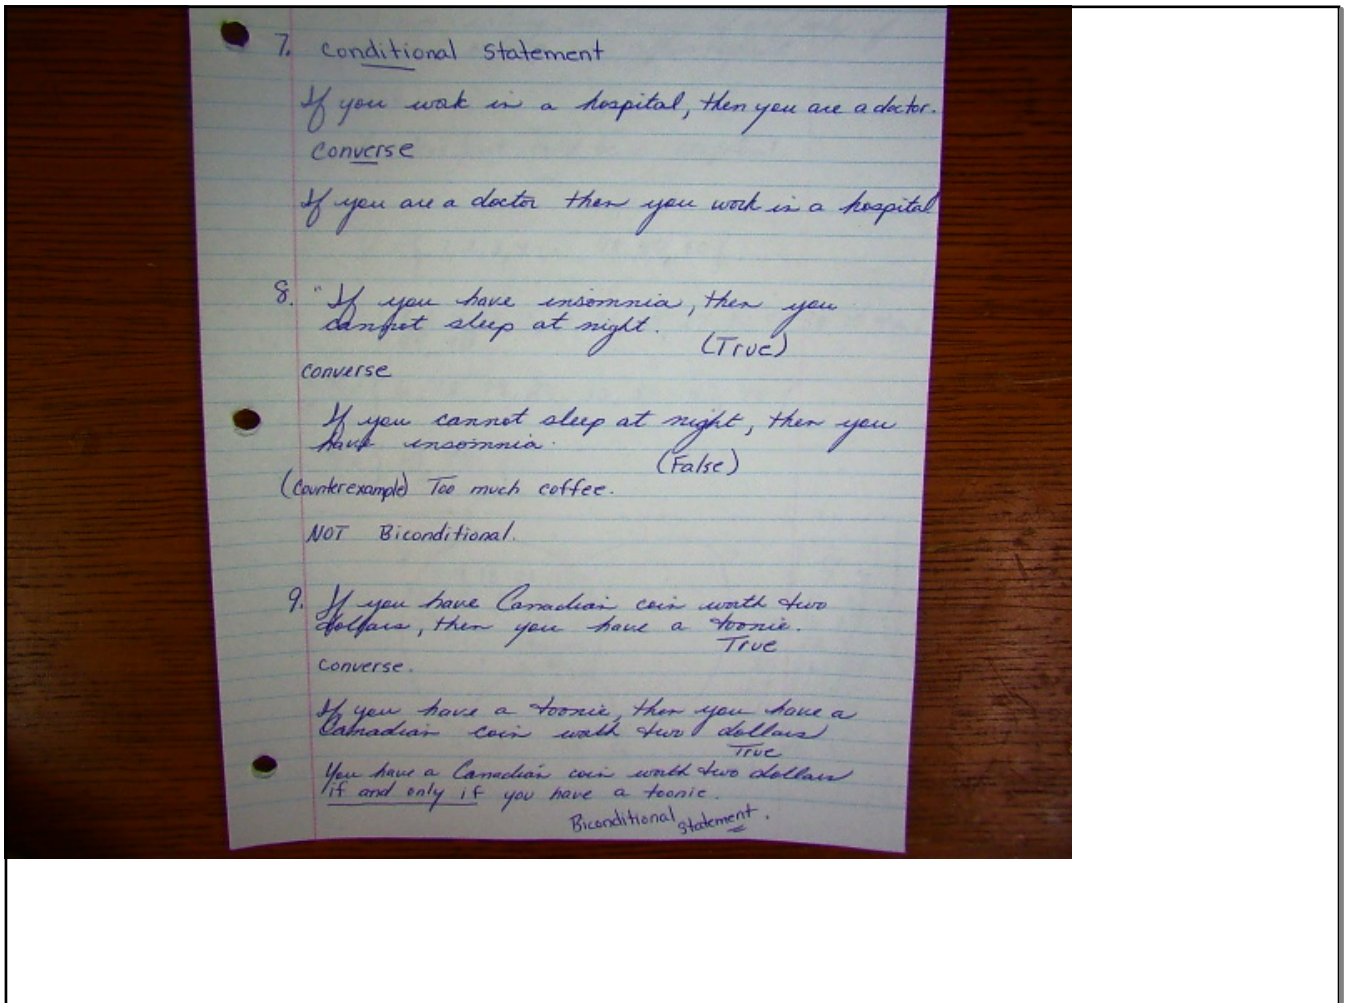 7. Conditional Statement
If you work in a hospital, then you are a doctor.
Converse
If you are a doctor then you work in a hospital
8. "If you have insomnia, then you
cannot sleep at night.
(True)
Converse
If you cannot sleep at night, then you
have insomnia.
(False)
(Counterexample) Too much coffee.
NOT Biconditional.
9. If you have Canadian coin worth two
dollars, then you have a toonie.
True
Converse.
If you have a toonie, then you have a
Canadian coin worth two dollars
True
You have a Canadian coin worth two dollars
if and only if you have a toonie.
Biconditional Statement.